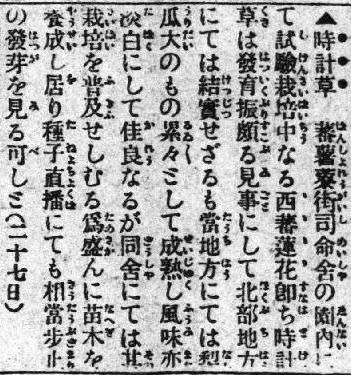 ▲時計草 蕃薯藔街司命舍の園内に
て試驗栽培中なる西蕃蓮花卽ち時計
草は發育振頗る見事にして北部地方
にては結實せざるも當地方にては梨
瓜大のもの累々として成熟し風味亦
淡白にして佳良なるが同舍にては其
栽培を普及せしむる爲盛んに苗木を
養成し居り種子直播にても相當步止
の發芽を見る可しと(二十七日)